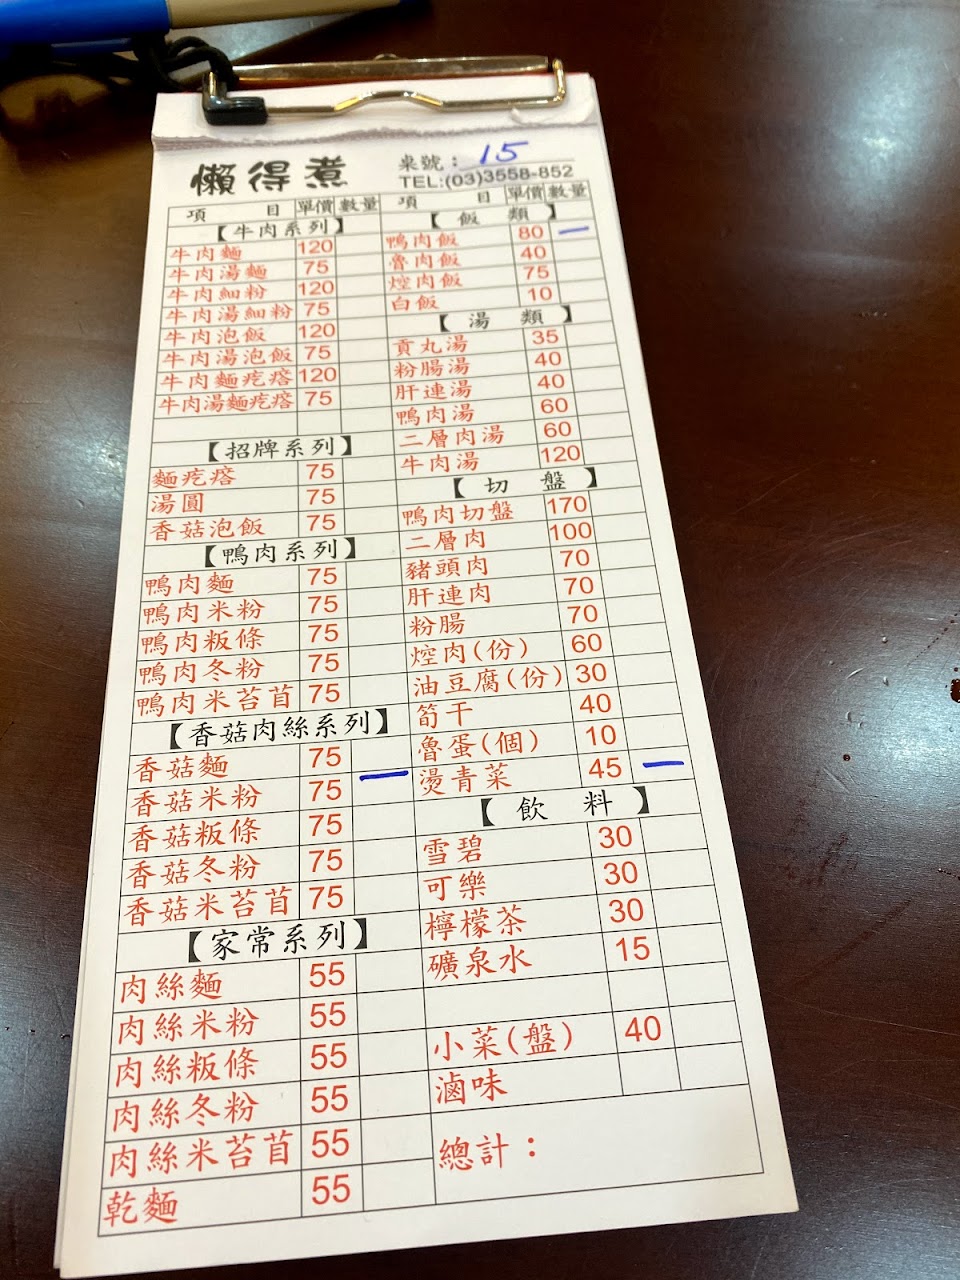 懶得煮
桌號：15
TEL:(03)3558-852
項 目 單價 數量
【牛肉系列】
牛肉麵 120
牛肉湯麵 75
牛肉細粉 120
牛肉湯細粉 75
牛肉泡飯 120
牛肉湯泡飯 75
牛肉麵疙瘩 120
牛肉湯麵疙瘩 75
【招牌系列】
麵疙瘩 75
湯圓 75
香菇泡飯 75
【鴨肉系列】
鴨肉麵 75
鴨肉米粉 75
鴨肉粄條 75
鴨肉冬粉 75
鴨肉米苔苜 75
【香菇肉絲系列】
香菇麵 75 一
香菇米粉 75
香菇粄條 75
香菇冬粉 75
香菇米苔苜 75
【家常系列】
肉絲麵 55
肉絲米粉 55
肉絲粄條 55
肉絲冬粉 55
肉絲米苔苜 55
乾麵 55
項 目 單價 數量
【飯 類】
鴨肉飯 80 一
魯肉飯 40
焢肉飯 75
白飯 10
【湯 類】
貢丸湯 35
粉腸湯 40
肝連湯 40
鴨肉湯 60
二層肉湯 60
牛肉湯 120
【切 盤】
鴨肉切盤 170
二層肉 100
豬頭肉 70
肝連肉 70
粉腸 70
焢肉(份) 60
油豆腐(份) 30
筍干 40
魯蛋(個) 10
燙青菜 45 一
【飲 料】
雪碧 30
可樂 30
檸檬茶 30
礦泉水 15
小菜(盤) 40
滷味
總計：